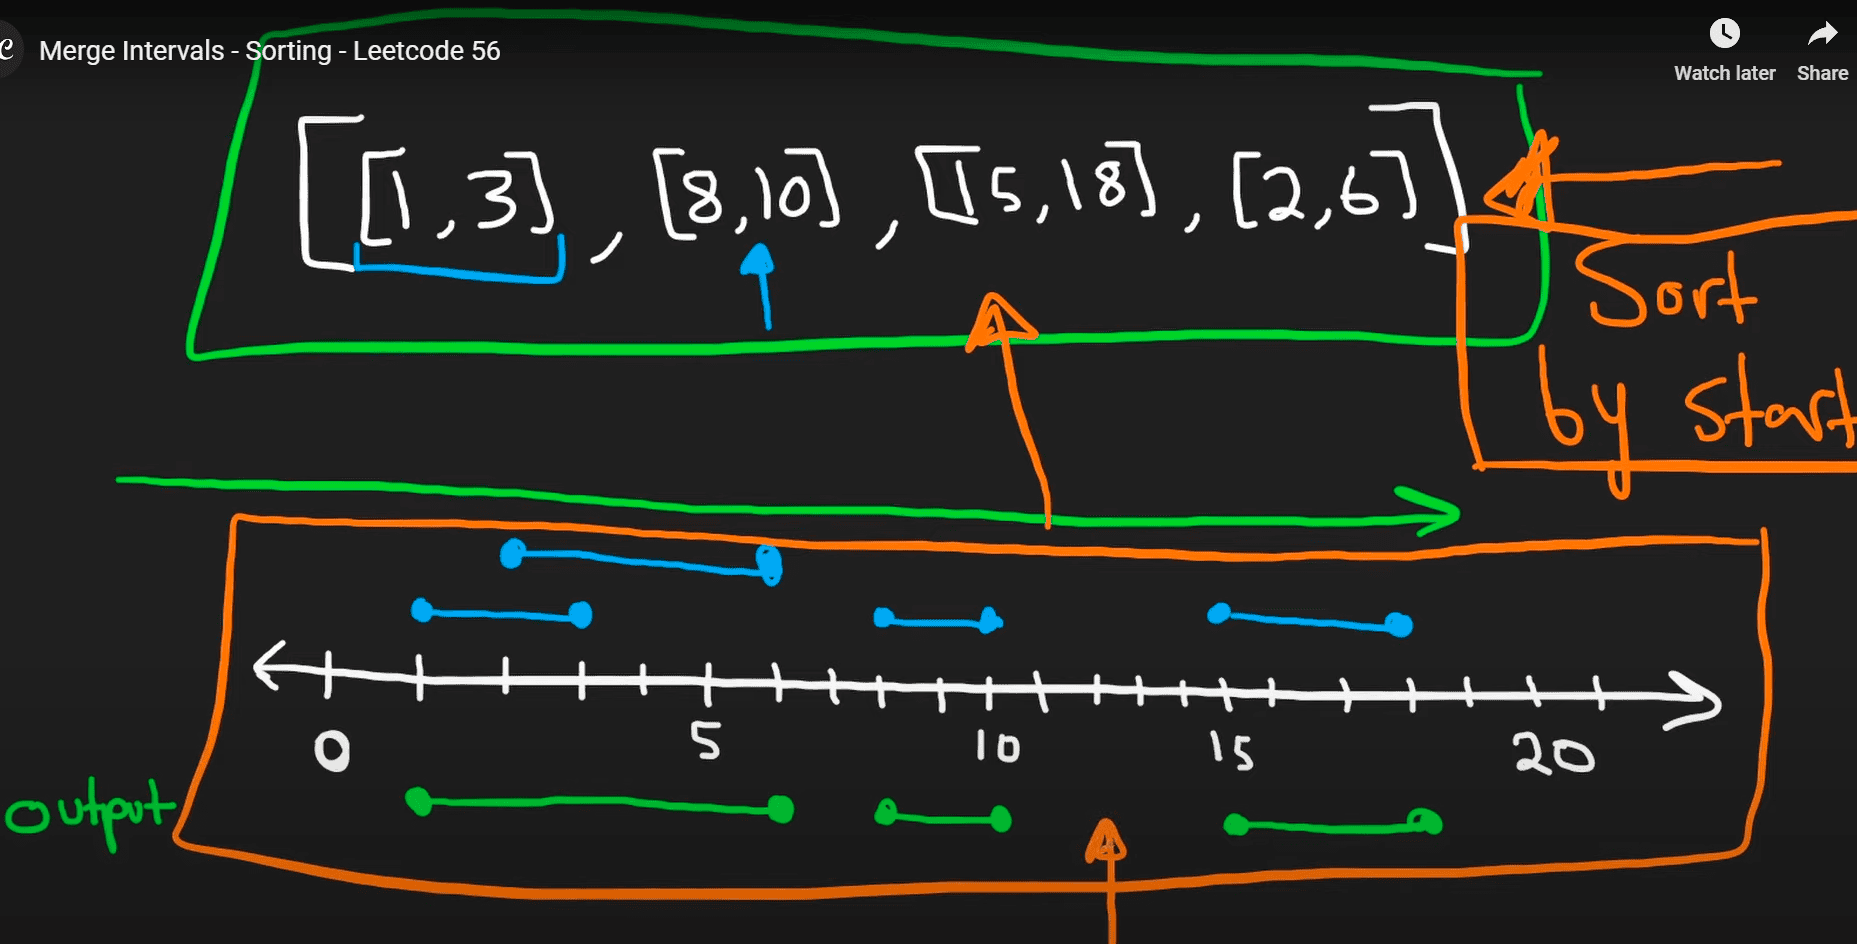 Merge Intervals - Sorting - Leetcode 56
Watch later
Share
[[1,3], [8,10], [15,18], [2,6]]
Sort
by start
0 5 10 15 20
output